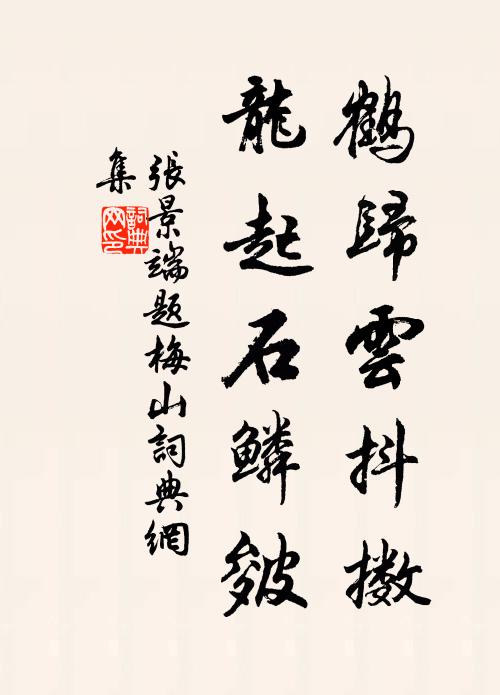 鶴歸雲抖擻
龍起石鱗皴
張景端題梅山詞典網
集
詞典
网印